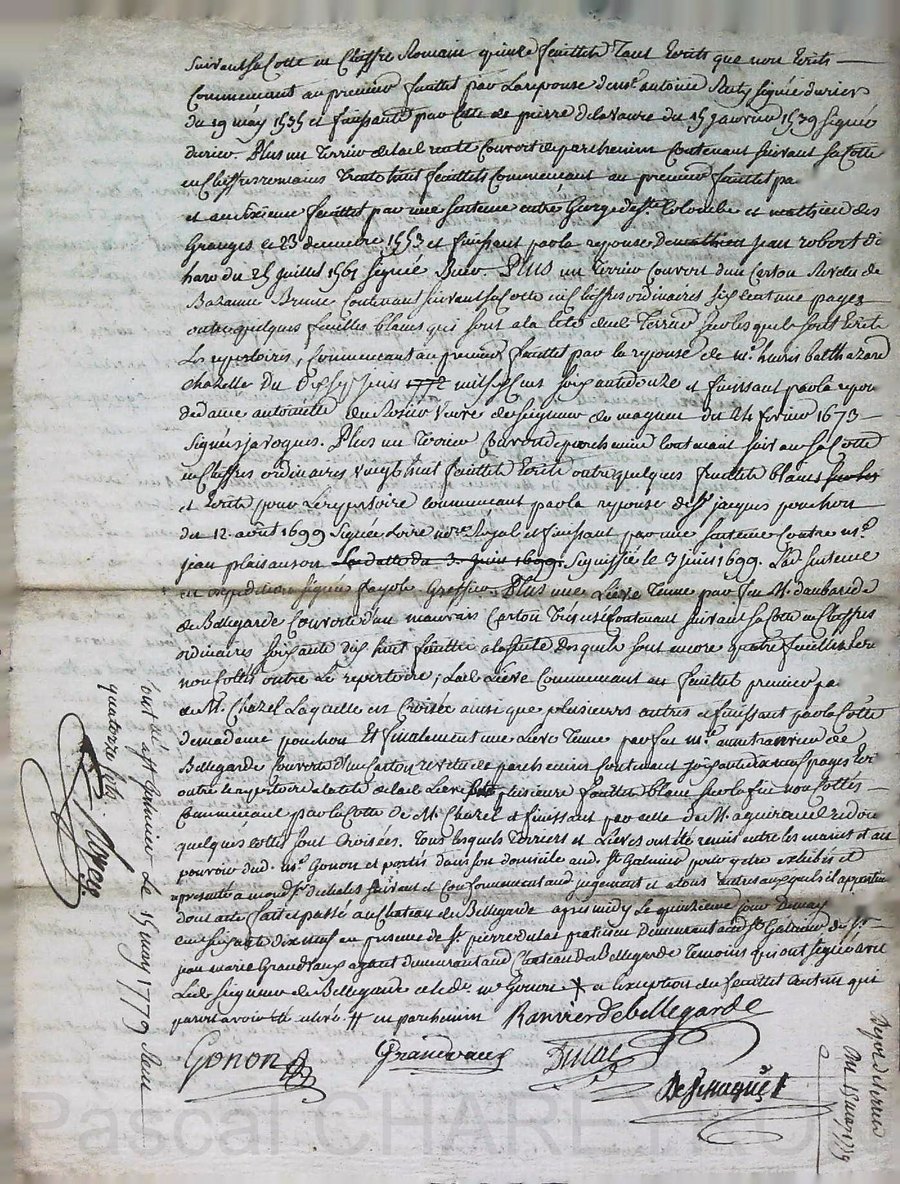 suivant sa Cotte en Chiffre Romain quinze feuillets Tant Ecrits que non Ecrits
Commencant au premier feuillet par La reponse de mre antoine Ruty signée durier
du 19 may 1535 et finissant par Celle de pierre delavaure du 15 janvier 1539 Signée
durier. Plus un Terrier de lad rente Couvert de parchemin Contenant suivant sa Cotte
en Chiffres romains Trente huit feuillets Commencant au premier feuillet pa
et au Sixieme feuillet par une sentence entre George de St. Colombe et mathieu des
Granges le 23 decembre 1553 et finissant par la reponse de jean robert de
haro du 25 juillet 1561 Signée Plus un Terrier Couvert d'un Carton Revetu de
Bazanne Brune Contenant suivant sa Cotte en Chiffres ordinaires six Cent une pages
outre quelques feuilles blancs qui sont a la tete dud. Terrier sur lesquels sont Ecrits
Les repertoires, Commencant au premier feuillet par la reponse de mr. henris balthazard
chazelle du Dix sept juin 1772 mil six Cens soixante douze et finissant par la repon
de dame antoinette du Rozier veuve de seigneur de magneu du 24 février 1673
Signés jaroques. Plus un Terrier Couvert de parchemin Contenant suivant sa Cotte
en Chiffres ordinaires vingt huit feuillets Ecrits outre quelques feuillets blancs
et Ecrits pour Le repertoire commencant par la reponse de Sr. jacques pouchon
du 12. août 1699 Signée Loire nore Royal et finissant par une sentence Contre mr.
jean plaisançon La datte du 3. juin 1699. Signiffié le 3 juin 1699. Lad sentence
en expedition signée fayole Greffier. Plus une Lieve Tenue par feu M. daubarede
de Bellegarde Couverte d'un mauvais Carton Très usé Contenant suivant sa Cotte en Chiffres
ordinaires soixante dix huit feuillets a la suite desquels sont encore quatre feuillets
non Cottés outre Le repertoire, Lad. Lieve Commencant au feuillet premier pa
de M. Chazel Laquelle est Croisée ainsi que plusieurs autres et finissant par la Cotte
de madame pouchon Et finalement une Lieve Tenue par feu mre. anne ranvier de
Bellegarde Couverte d'un Carton revetu de parchemin Contenant soixante dix neuf pages
outre le repertoire a la tete de lad Lieve plusieurs feuillets blancs sur la fin non Cottés
Commencant par la Cotte de M. Chazel et finissant par celle de M. aguiraud
quelques cottes sont Croisées. Tous lesquels Terriers et Lieves ont été remis entre les mains et au
pouvoir dud. mre. Gonon et portés dans son domicile aud. St Galmier pour y etre exhibés et
representé a mond Sr. dechales suivant et Conformement aud jugement et a tous autres auxquels il appartien
dont acte fait et passé au Chateau de Bellegarde après midy Le quinzième jour de may
mil sept cent soixante dix neuf en presence de Sr. pierre dulac praticien demeurant aud St Galmier et de Sr.
jean marie Grandvaux agent demeurant aud. Chateau de Bellegarde Temoins qui ont signé avec
Led. Seigneur de Bellegarde et led. me Gonon a l'exception du feuillet
paroit avoir été en parchemin Ranvier de bellegarde
Gonon Grandvaux Dulac
galmier Le 15 may 1779 Recu
quatorze sols
15 may 1779
Pascal CHAREYRON